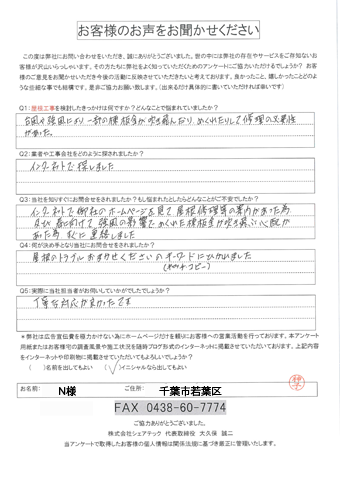 お客様のお声をお聞かせください
この度は弊社にお問い合わせをいただき、誠にありがとうございました。世の中には弊社の存在やサービスをご存知ないお
客様が沢山いらっしゃいます。その方たちに弊社をよく知っていただくためのアンケートにご協力いただけるでしょうか？お客
様のご意見をお聞かせいただき今後の活動に反映させていきたいと考えております。良かったこと、嬉しかったことどのよ
うな些細な事でも結構です。是非ご協力お願い致します。（出来るだけ具体的に書いていただければ幸いです）
Q1:屋根工事を検討したきっかけは何ですか？どんなことで悩まれていましたか？
台風や強風により一部の棟板金が吹き飛んだり、めくれたりして修理の必要性
があった。
Q2:業者や工事会社をどのように探されましたか？
インターネットで探しました
Q3:当社を知りすぐにお問合せをされましたか？もし悩まれたとしたらどんなことがご不安でしたか？
インターネットで御社のホームページを見て屋根修理等の案内があった為
又、春に向けて強風の影響でめくれた棟板金が吹き飛ぶ心配が
あった為すぐに連絡しました
Q4:何が決め手となり当社にお問合せをされましたか？
屋根のトラブルおまかせくださいのキーワードにひかれました
(キャッチコピー)
Q5:実際に当社担当者がお伺いしていかがでしたでしょうか？
丁寧な対応が良かったです
＊弊社は広告宣伝費を極力かけない為にホームページだけを頼りにお客様への営業活動を行っております。本アンケート
用紙またはお客様宅の調査風景や施工状況を随時ブログ形式のインターネットに掲載させていただいております。上記内容
をインターネットや印刷物に掲載させていただいてもよろしいでしょうか？
（　）名前を出してもよい　（✓）イニシャルなら出してもよい
お名前：　N様　ご住所：　千葉市若葉区
FAX 0438-60-7774
ご協力ありがとうございました。
株式会社シェアテック 代表取締役 大久保 誠二
当アンケートで取得したお客様の個人情報は関係法規に基づき厳正に管理いたします。